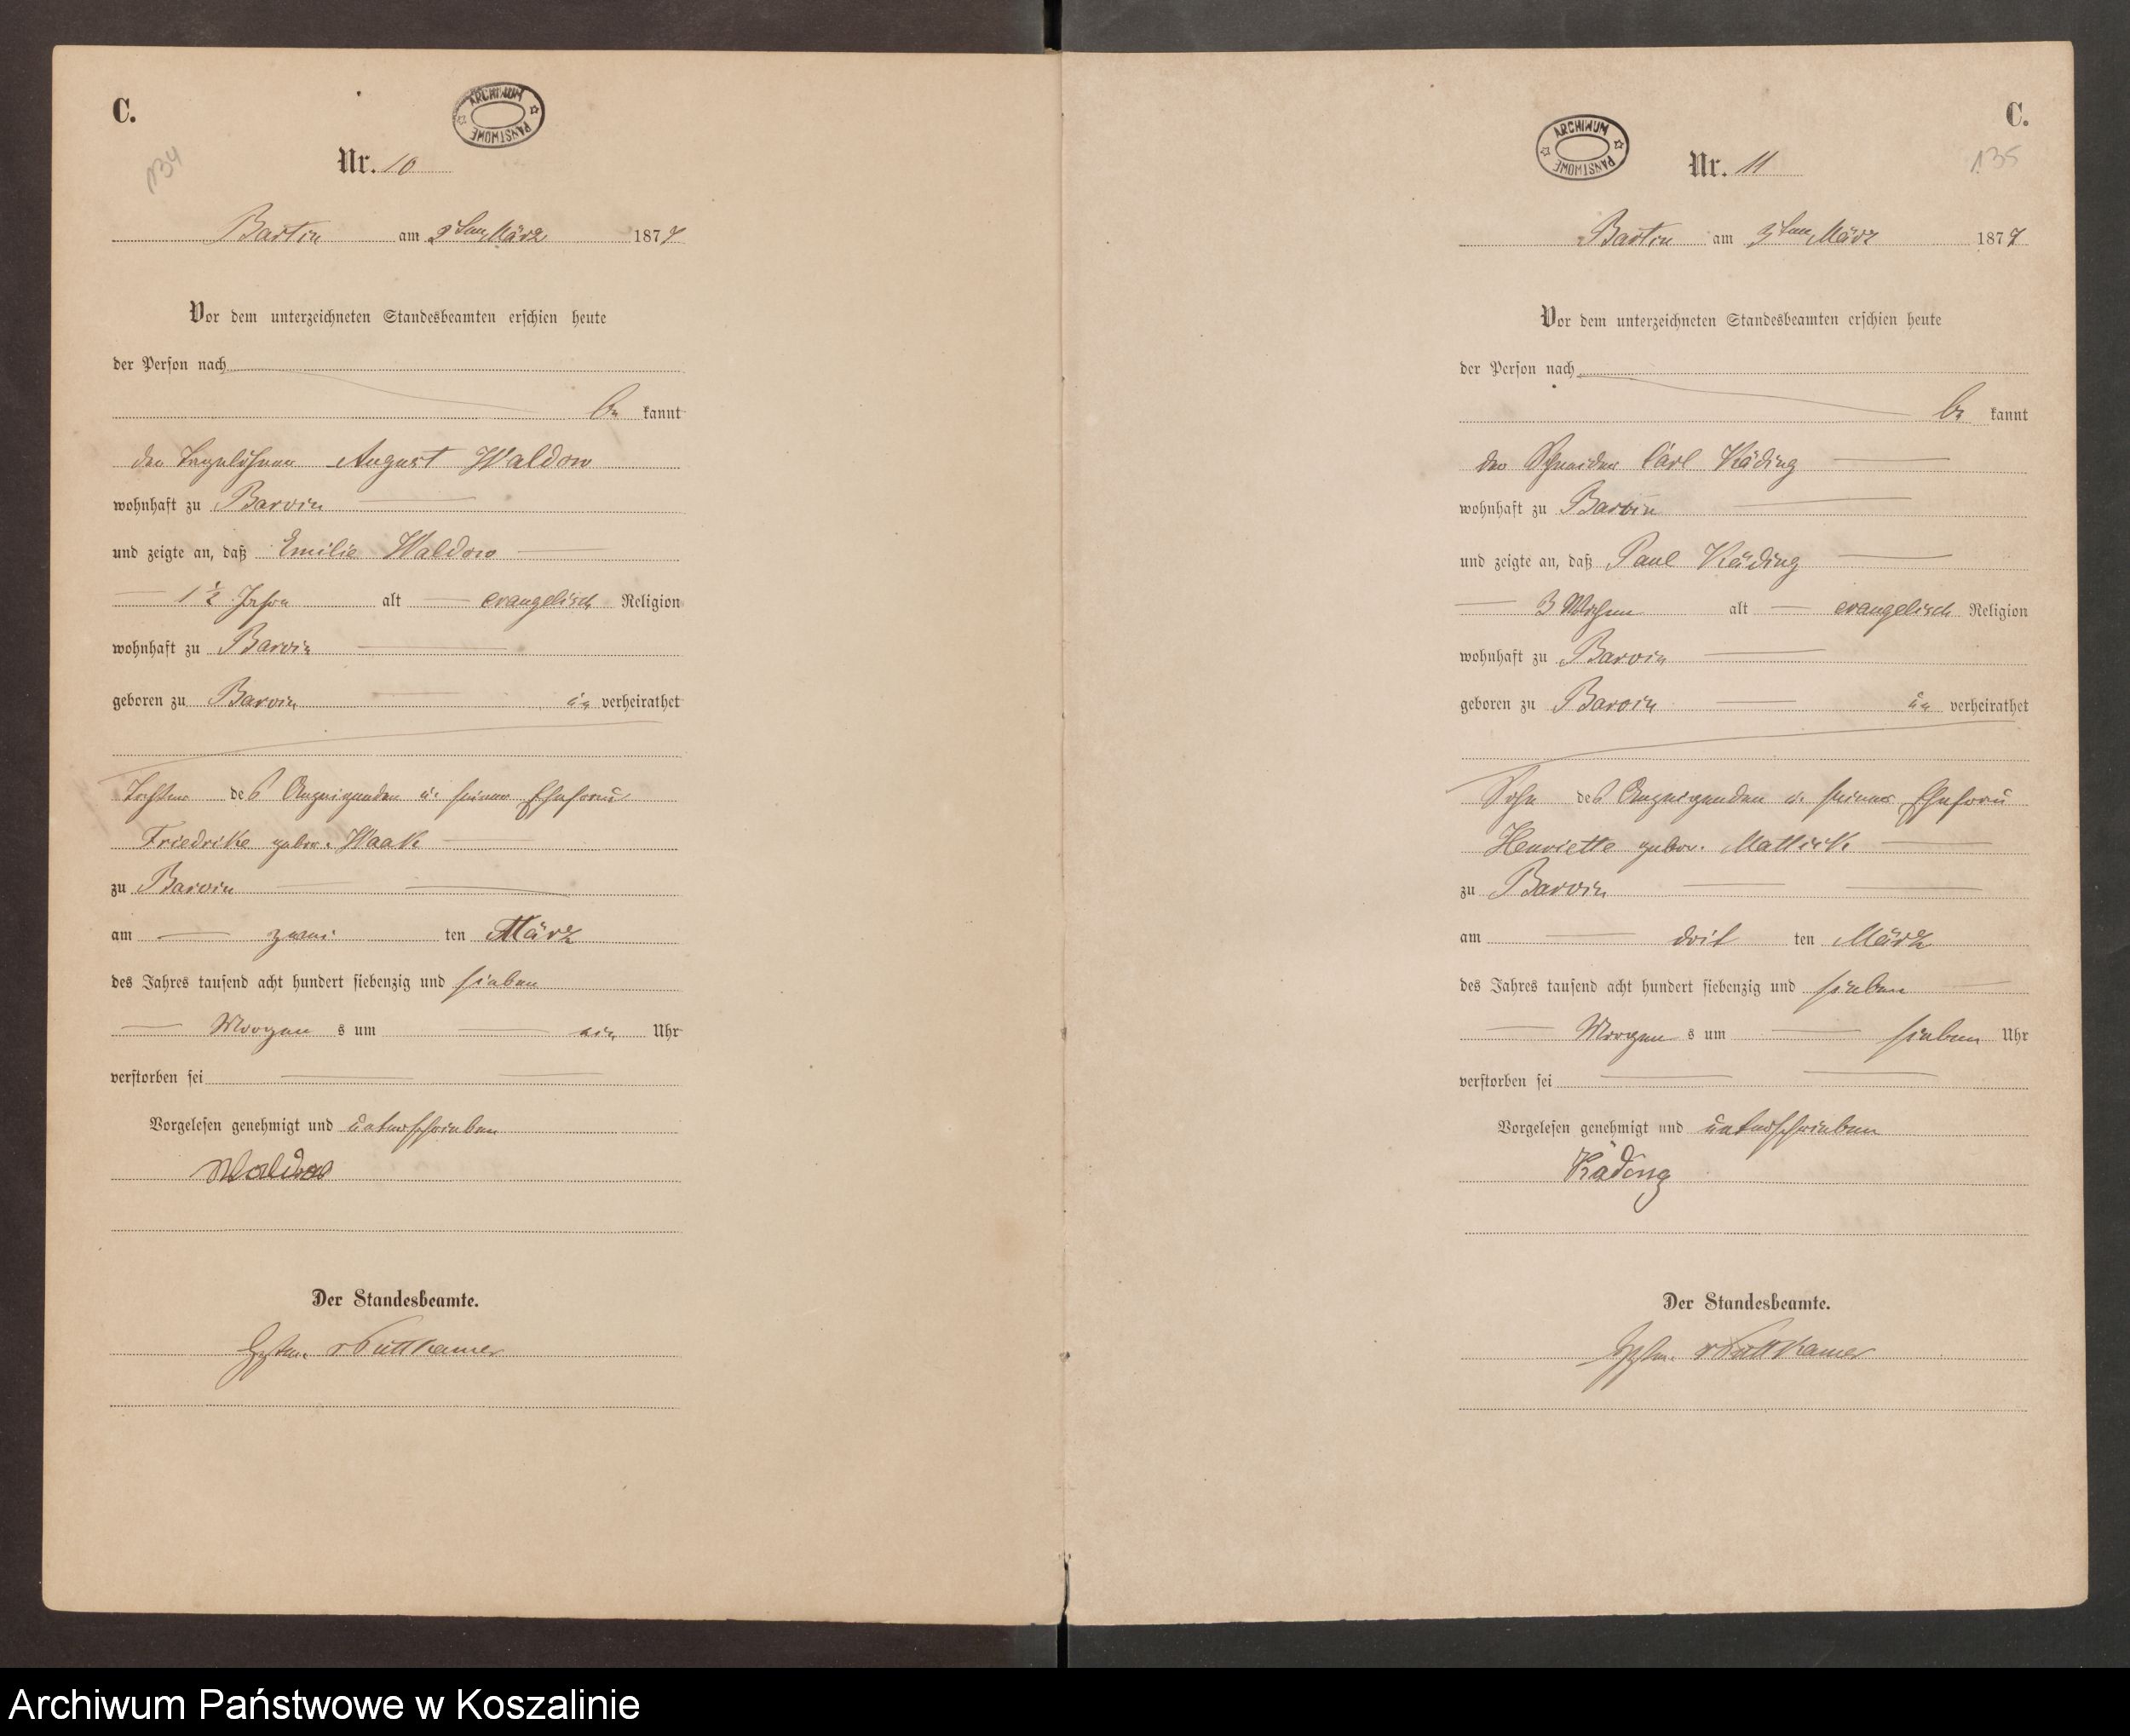 C.
ARCHIWUM PAŃSTWOWE
134
Nr. 10
Bartin am 3ten März 1877
Vor dem unterzeichneten Standesbeamten erschien heute
der Person nach
be kannt
der Tagelöhner August Waldow
wohnhaft zu Barvin
und zeigte an, daß Emilie Waldow
1½ Jahre alt evangelisch Religion
wohnhaft zu Barvin
geboren zu Barvin un verheirathet
Tochter des Anzeigenden u. seiner Ehefrau
Friedrike gebor. Waak
zu Barvin
am zwei ten März
des Jahres tausend acht hundert siebenzig und sieben
Morgen s um ein Uhr
verstorben sei
Vorgelesen genehmigt und unterschrieben
Waldow
Der Standesbeamte.
v Puttkamer
C.
ARCHIWUM PAŃSTWOWE
135
Nr. 11
Bartin am 3ten März 1877
Vor dem unterzeichneten Standesbeamten erschien heute
der Person nach
be kannt
der Schneider Carl Käding
wohnhaft zu Barvin
und zeigte an, daß Paul Käding
3 Wochen alt evangelisch Religion
wohnhaft zu Barvin
geboren zu Barvin un verheirathet
Sohn des Anzeigenden u. seiner Ehefrau
Henriette gebor. Mallick
zu Barvin
am drit ten März
des Jahres tausend acht hundert siebenzig und sieben
Morgen s um sieben Uhr
verstorben sei
Vorgelesen genehmigt und unterschrieben
Käding
Der Standesbeamte.
v Puttkamer
Archiwum Państwowe w Koszalinie